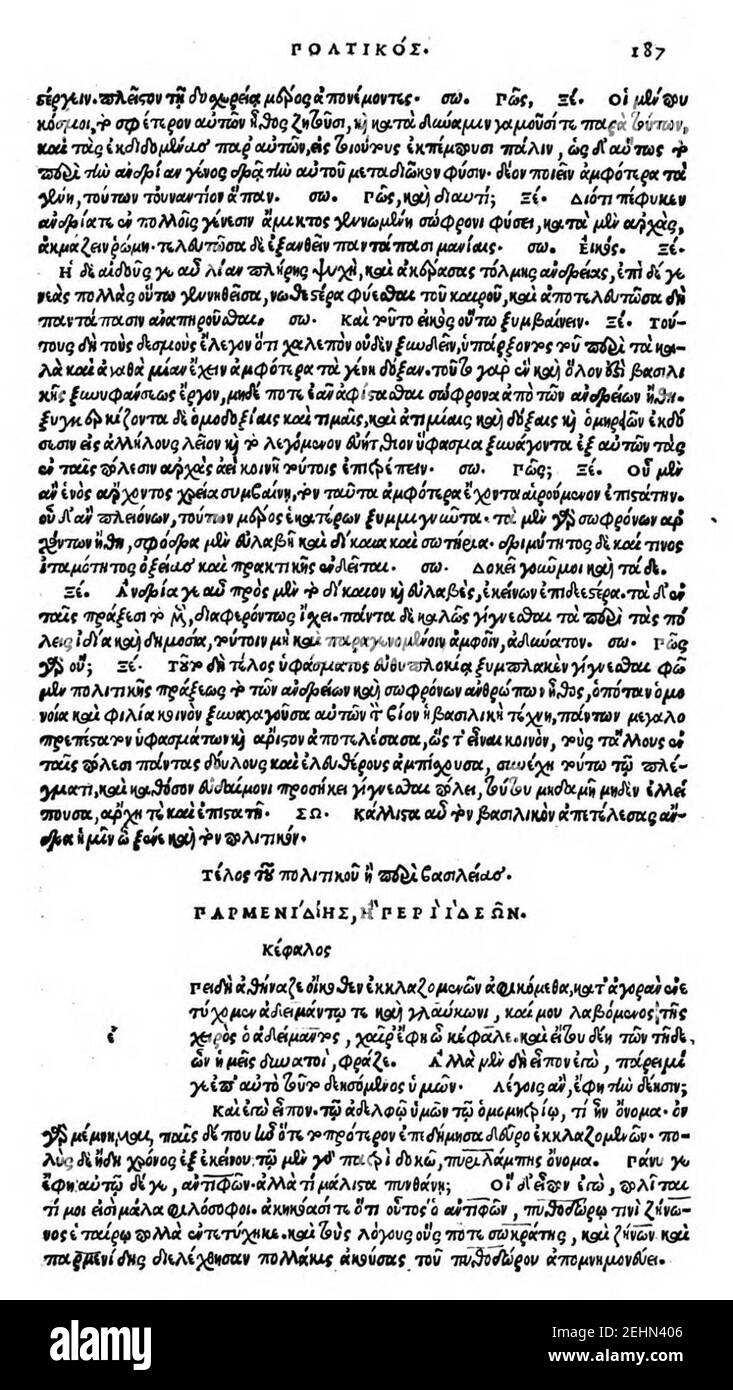 ΠΟΛΙΤΙΚΌΣ. 187
εἴργειν. πλεῖστον τῇ δυσχερείᾳ μέρος ἀπονέμοντες. σω. Πῶς, Ξέ. Οἱ μέν που
κόσμιοι, τὸ σφέτερον αὐτῶν ἦθος ζητοῦσι, καὶ κατὰ δύναμιν γαμοῦσί τε παρὰ τούτων,
καὶ τὰς ἐκδιδομένας παρ' αὐτῶν, εἰς τοιούτους ἐκπέμπουσι πάλιν, ὡς δ' αὕτως τὸ
περὶ τὴν ἀνδρίαν γένος δρᾷ τὴν αὐτοῦ μεταδιῶκον φύσιν. δέον ποιεῖν ἀμφότερα τὰ
γένη, τούτων τοὐναντίον ἅπαν. σω. Πῶς, καὶ διατί; Ξέ. Διότι πέφυκεν
ἀνδρία τε ἐν πολλαῖς γένεσιν ἄμικτος γεννωμένη σώφρονι φύσει, κατὰ μὲν ἀρχὰς,
ἀκμάζειν ῥώμῃ. τελευτῶσα δὲ ἐξανθεῖν παντάπασι μανίαις. σω. Εἰκός. Ξέ.
Ἡ δὲ αἰδοῦς γε αὖ λίαν πλήρης ψυχὴ, καὶ ἀκέραστος τόλμης ἀνδρείας, ἐπὶ δέ γε
νεὰς πολλὰς οὕτω γεννηθεῖσα, νωθεστέρα φύεσθαι τοῦ καιροῦ, καὶ ἀποτελευτῶσα δὴ
παντάπασιν ἀναπηροῦσθαι. σω. Καὶ τοῦτο εἰκὸς οὕτω ξυμβαίνειν. Ξέ. Τού-
τους δὴ τοὺς δεσμοὺς ἔλεγον ὅτι χαλεπὸν οὐδὲν ξυνδεῖν, ὑπάρξοντος τοῦ περὶ τὰ κα-
λὰ καὶ ἀγαθὰ μίαν ἔχειν ἀμφότερα τὰ γένη δόξαν. τοῦτο γὰρ ἓν καὶ ὅλον ἐστὶ βασιλι
κῆς ξυνυφάνσεως ἔργον, μηδέ ποτε ἐᾶν ἀφίστασθαι σώφρονα ἀπὸ τῶν ἀνδρείων ἤθη.
ξυγκερκίζοντα δὲ ὁμοδοξίαις καὶ τιμαῖς, καὶ ἀτιμίαις καὶ δόξαις καὶ ὁμηρῶν ἐκδό
σεσιν εἰς ἀλλήλους λεῖον καὶ τὸ λεγόμενον εὐήτριον ὕφασμα ξυνάγοντα ἐξ αὐτῶν τὰς
ἐν ταῖς πόλεσιν ἀρχὰς ἀεὶ κοινῇ τούτοις ἐπιτρέπειν. σω. Πῶς; Ξέ. Οὗ μὲν
ἂν ἑνὸς ἄρχοντος χρεία συμβαίνῃ, τὸν ταῦτα ἀμφότερα ἔχοντα αἱρούμενον ἐπιστάτην.
οὗ δ' ἂν πλειόνων, τούτων μέρος ἑκατέρων ξυμμιγνῶντα. τὰ μὲν γὰρ σωφρόνων ἀρ
χόντων ἤθη, σφόδρα μὲν εὐλαβῆ καὶ δίκαια καὶ σωτήρια. δριμύτητος δὲ καί τινος
ἰταμότητος ὀξείας καὶ πρακτικῆς ἐνδεῖται. σω. Δοκεῖ γοῦν μοι καὶ τάδε.
Ξέ. Ἀνδρία γε αὖ πρὸς μὲν τὸ δίκαιον καὶ εὐλαβὲς, ἐκείνων ἐπιδεεστέρα. τὰ δ' ἐν
ταῖς πράξεσι τὸ μὴν, διαφερόντως ἴχει. πάντα δὲ καλῶς γίγνεσθαι τὰ περὶ τὰς πό
λεις ἰδίᾳ καὶ δημοσίᾳ, τούτοιν μὴ καὶ παραγενομένοιν ἀμφοῖν, ἀδύνατον. σω. Πῶς
γὰρ οὔ; Ξέ. Τοῦτο δὴ τέλος ὑφάσματος εὐθυπλοκίᾳ ξυμπλακὲν γίγνεσθαι φῶ
μεν πολιτικῆς πράξεως τὸ τῶν ἀνδρείων καὶ σωφρόνων ἀνθρώπων ἦθος, ὁπόταν ὁμο
νοίᾳ καὶ φιλίᾳ κοινὸν ξυναγαγοῦσα αὐτῶν τὸν βίον ἡ βασιλικὴ τέχνη, πάντων μεγαλο
πρεπέστατον ὑφασμάτων καὶ ἄριστον ἀποτελέσασα, ὥς τ' εἶναι κοινὸν, τούς τ' ἄλλους ἐν
ταῖς πόλεσι πάντας δούλους καὶ ἐλευθέρους ἀμπίσχουσα, συνέχῃ τούτῳ τῷ πλέ-
γματι, καὶ καθόσον εὐδαίμονι προσήκει γίγνεσθαι πόλει, τούτου μηδαμῇ μηδὲν ἐλλεί
πουσα, ἄρχῃ τε καὶ ἐπιστατῇ. ΣΩ. Κάλλιστα αὖ τὸν βασιλικὸν ἀπετέλεσας ἄν-
δρα ἡμῖν ὦ ξένε καὶ τὸν πολιτικόν.
Τέλος τοῦ πολιτικοῦ ἢ περὶ βασιλείας.
ΠΑΡΜΕΝΙΔΗΣ, Ἢ ΠΕΡῚ ἸΔΕΩ͂Ν.
Κέφαλος
Πειδὴ ἀθήναζε οἴκοθεν ἐκ κλαζομενῶν ἀφικόμεθα, κατ' ἀγορὰν ἐνε
τύχομεν ἀδειμάντῳ τε καὶ γλαύκωνι, καί μου λαβόμενος τῆς
ἐ χειρὸς ὁ ἀδείμαντος, χαῖρ' ἔφη ὦ κέφαλε. καὶ εἴ του δέῃ τῶν τῇδε,
ὧν ἡμεῖς δυνατοὶ, φράζε. Ἀλλὰ μὲν δὴ εἶπον ἐγὼ, πάρειμί
γε ἐπ' αὐτὸ τοῦτο δεησόμενος ὑμῶν. Λέγοις ἂν, ἔφη τὴν δέησιν;
Καὶ ἐγὼ εἶπον. τῷ ἀδελφῷ ὑμῶν τῷ ὁμομητρίῳ, τί ἦν ὄνομα. οὐ
γὰρ μέμνημαι, παῖς δέ που ἦν ὅτε τὸ πρότερον ἐπεδήμησα δεῦρο ἐκ κλαζομενῶν. πο-
λὺς δὲ ἤδη χρόνος ἐξ ἐκείνου. τῷ μὲν γὰρ πατρὶ δοκῶ, πυριλάμπης ὄνομα. Πάνυ γε
ἔφη. αὐτῷ δέ γε, ἀντιφῶν. ἀλλὰ τί μάλιστα πυνθάνῃ; Οἵδ' εἶπον ἐγὼ, πολῖται
τί μοι εἰσὶ μάλα φιλόσοφοι. ἀκηκόασί τε ὅτι οὗτος ὁ ἀντιφῶν, πυθοδώρῳ τινὶ ζήνω-
νος ἑταίρῳ πολλὰ ἐντετύχηκε. καὶ τοὺς λόγους οὕς ποτε σωκράτης, καὶ ζήνων καὶ
παρμενίδης διελέχθησαν πολλάκις ἀκούσας τοῦ πυθοδώρου ἀπομνημονεύει.
alamy
Image ID: 2EHN406
www.alamy.com